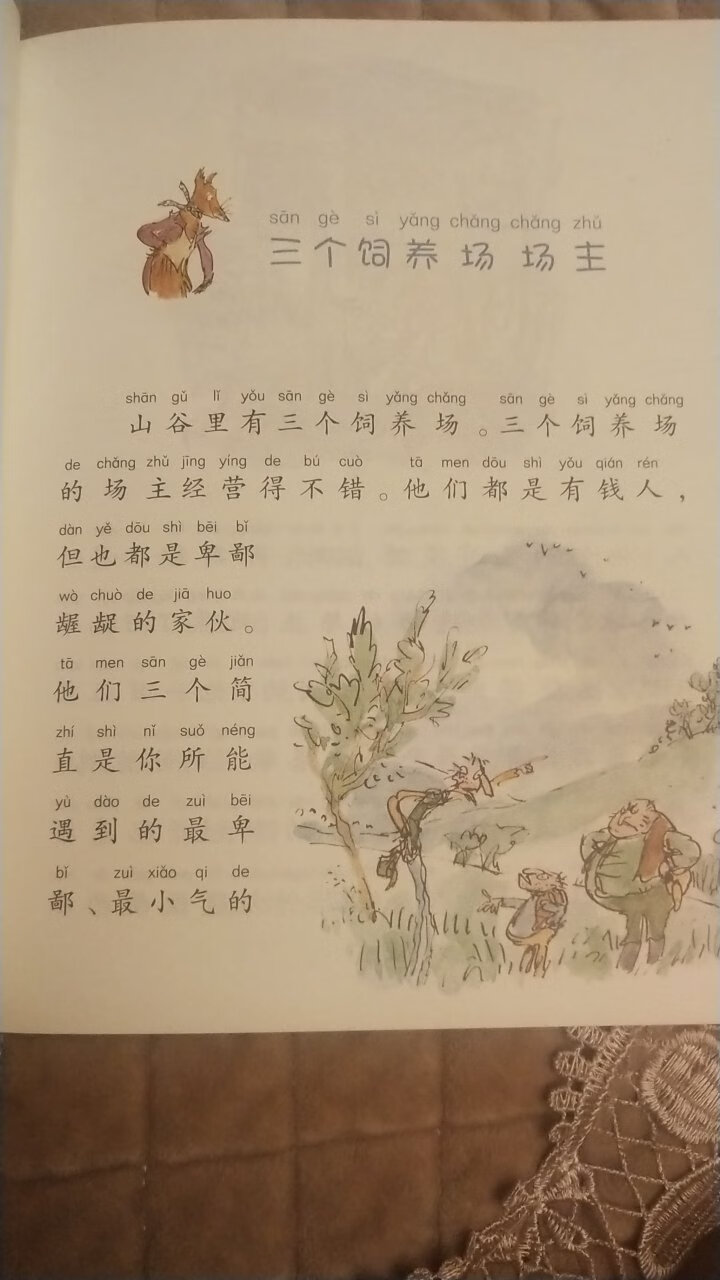 sān gè sì yǎng chǎng chǎng zhǔ
三个饲养场场主
shān gǔ lǐ yǒu sān gè sì yǎng chǎng sān gè sì yǎng chǎng
山谷里有三个饲养场。三个饲养场
de chǎng zhǔ jīng yíng de bú cuò tā men dōu shì yǒu qián rén
的场主经营得不错。他们都是有钱人，
dàn yě dōu shì bēi bǐ
但也都是卑鄙
wò chuò de jiā huo
龌龊的家伙。
tā men sān gè jiǎn
他们三个简
zhí shì nǐ suǒ néng
直是你所能
yù dào de zuì bēi
遇到的最卑
bǐ zuì xiǎo qi de
鄙、最小气的